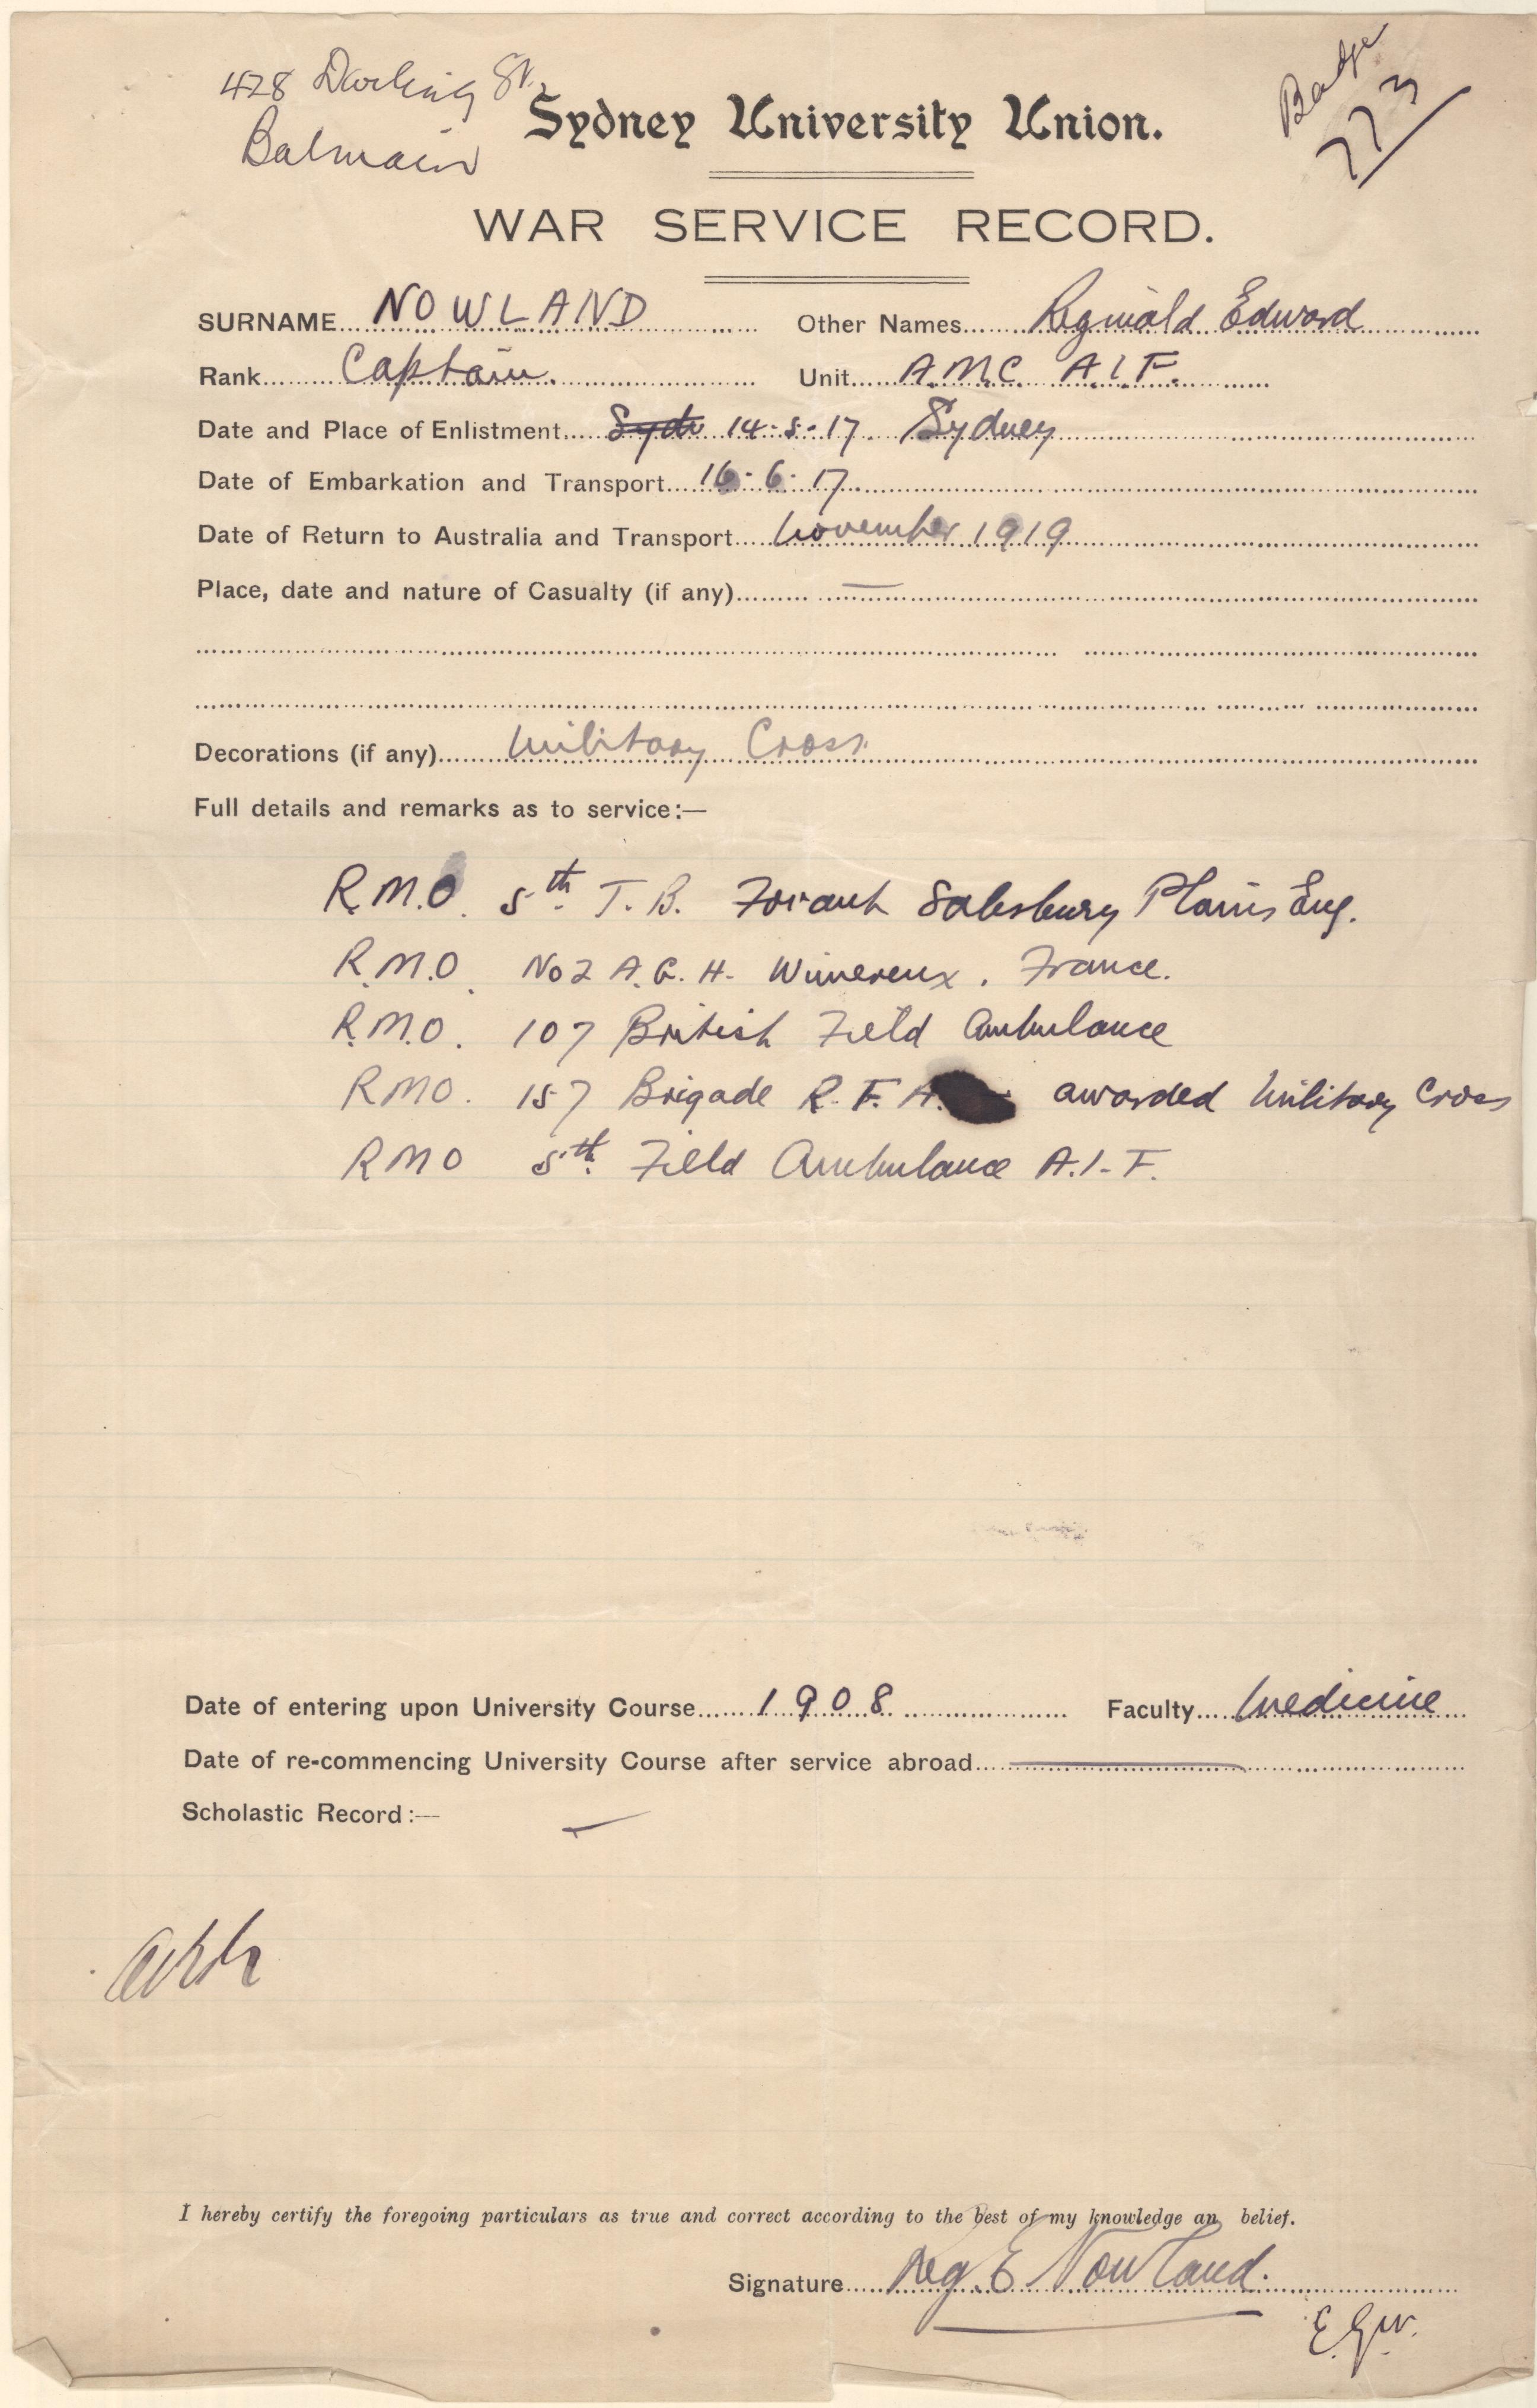 428 Darling St.
Balmain
Badge
773
Sydney University Union.
WAR SERVICE RECORD.
SURNAME NOWLAND Other Names Reginald Edward
Rank Captain. Unit A.M.C. A.I.F.
Date and Place of Enlistment Syd 14-5-17. Sydney
Date of Embarkation and Transport 16-6-17.
Date of Return to Australia and Transport November 1919
Place, date and nature of Casualty (if any) —
Decorations (if any) Military Cross.
Full details and remarks as to service:—
R.M.O. 5th. T.B. Fovant Salesbury Plains Eng.
R.M.O. No 2 A.G.H. Wimereux. France.
R.M.O. 107 British Field Ambulance
RMO. 157 Brigade R.F.A. awarded Military Cross
RMO 5th. Field Ambulance A.I.F.
Date of entering upon University Course 1908 Faculty Medicine
Date of re-commencing University Course after service abroad —
Scholastic Record:— —
I hereby certify the foregoing particulars as true and correct according to the best of my knowledge an belief.
Signature Reg. E Nowland.
E.G.W.